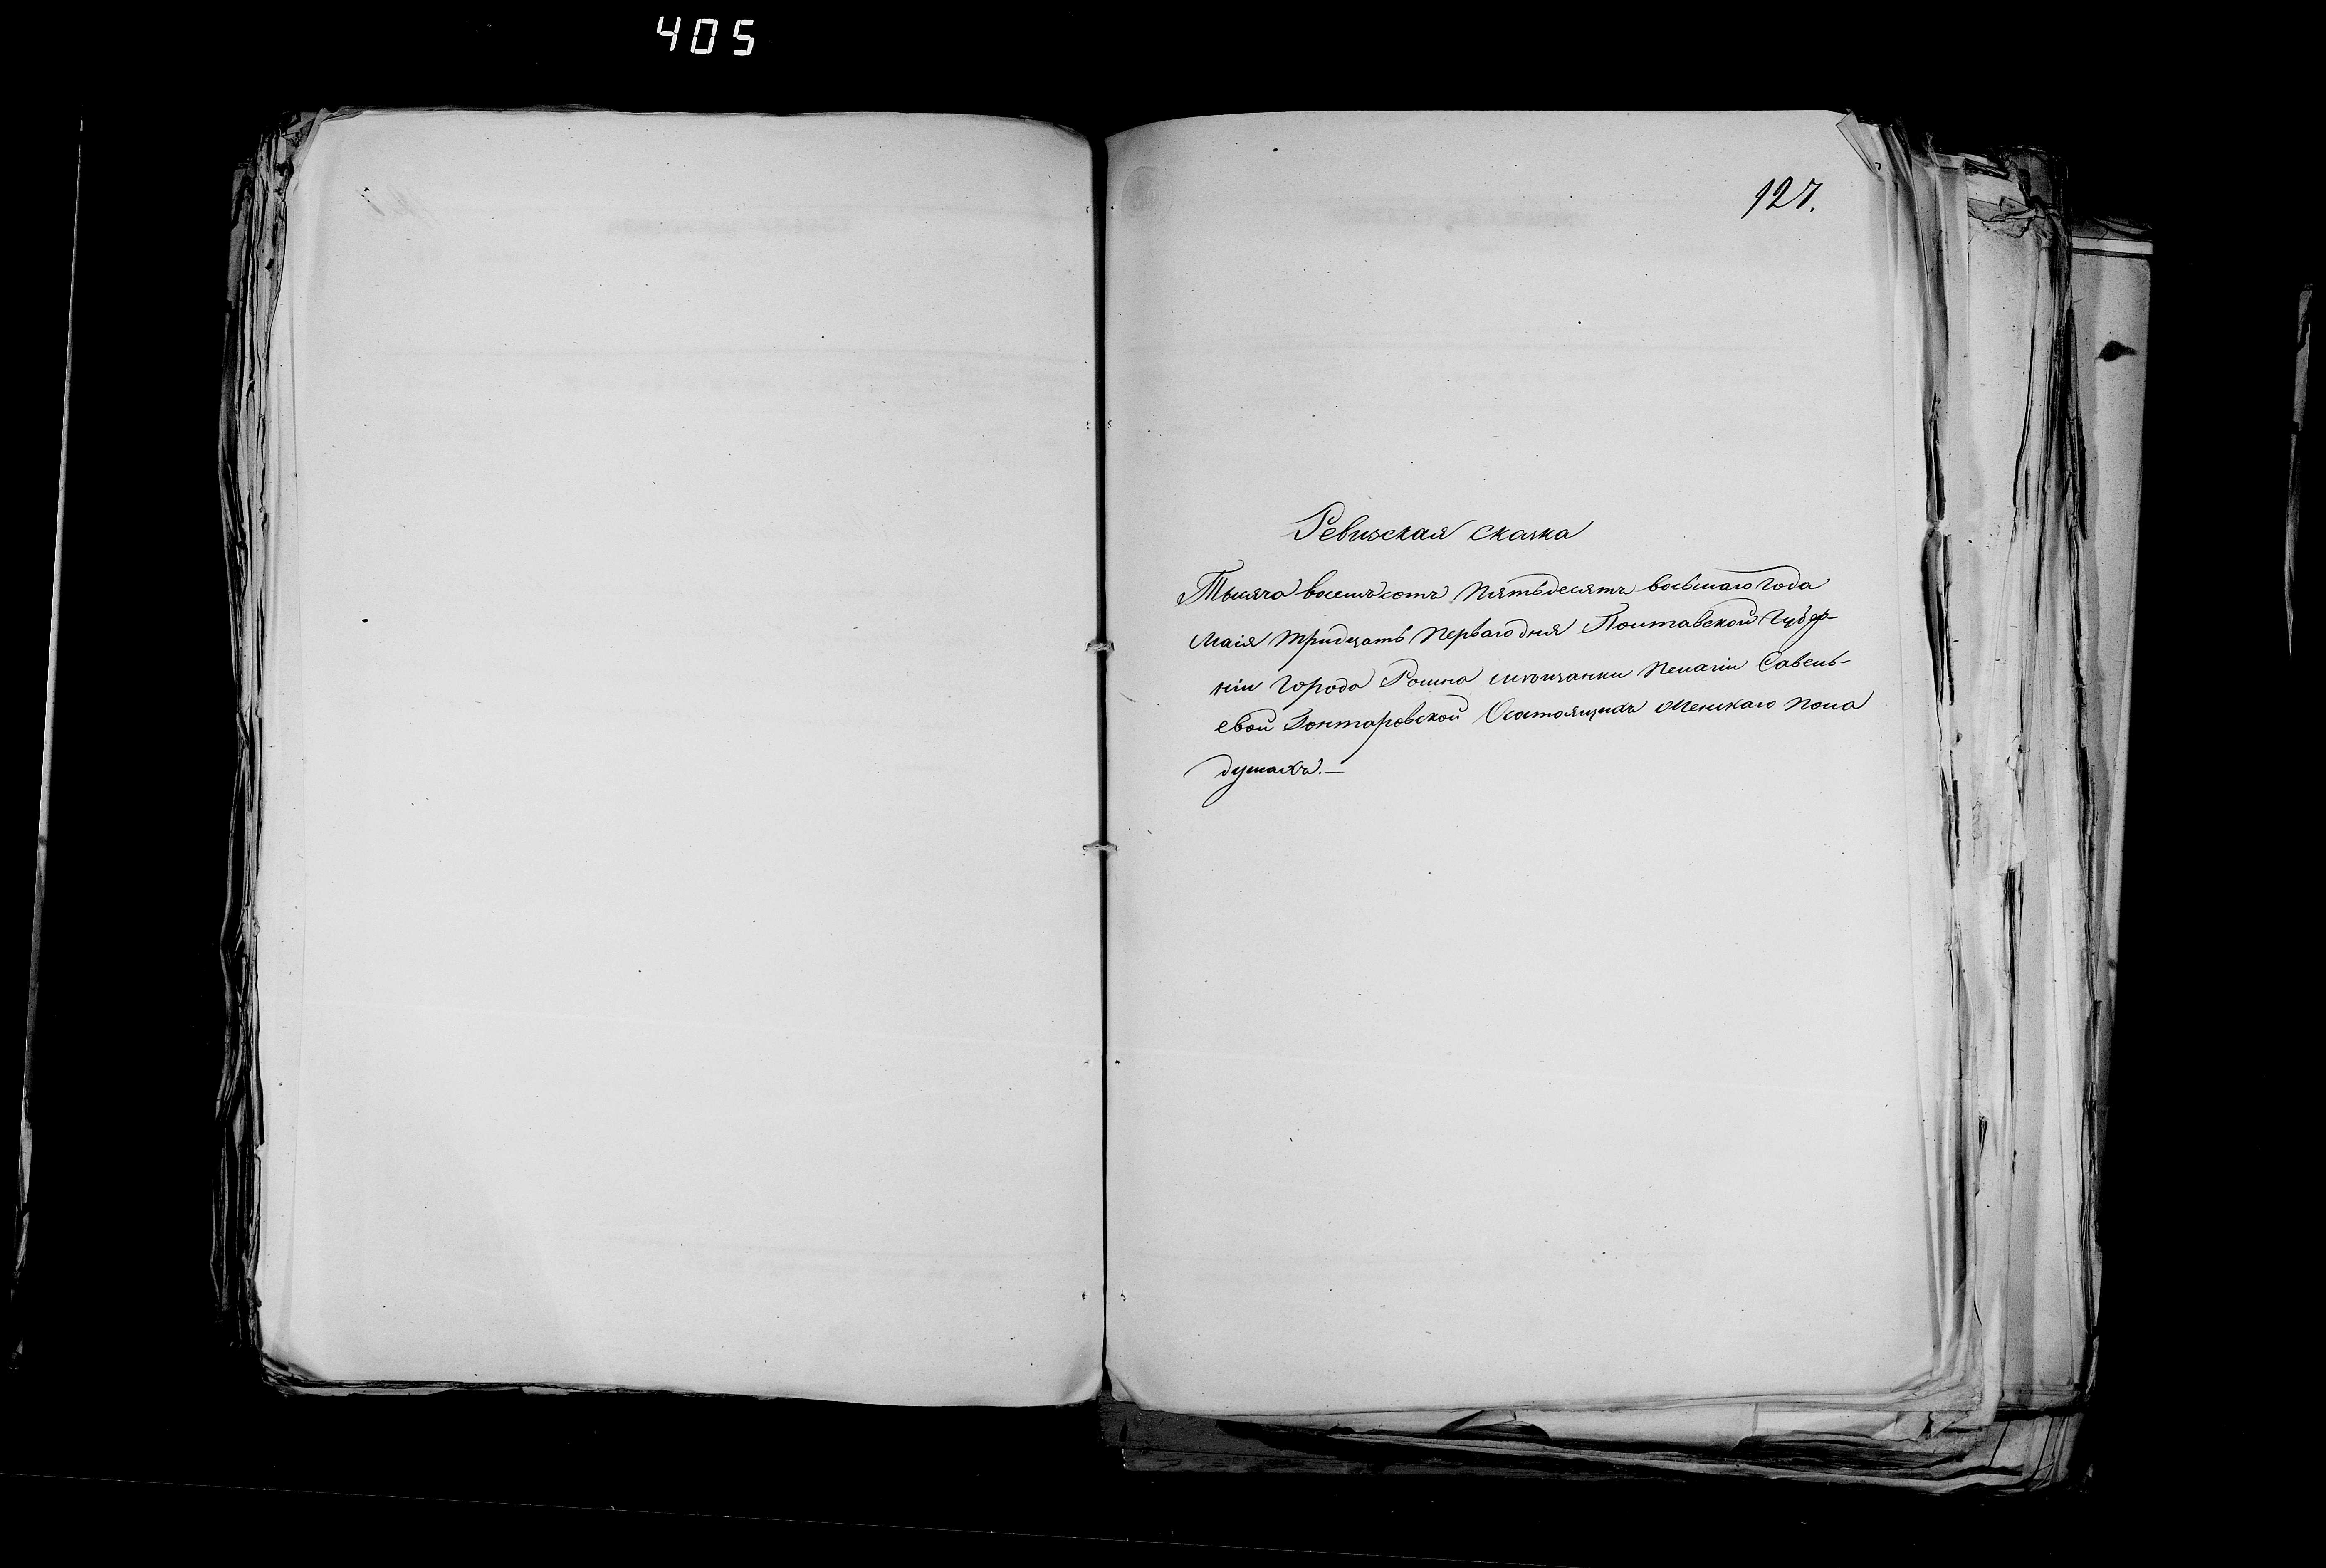 405
127.
Ревизская сказка
Тысяча восемьсотъ Пятьдесятъ восьмаго года
Маія тридцать перваго дня Полтавской Губер-
ніи города Ромна мѣщанки Пелагіи Савель-
евой Гонтаровской Осостоящихъ Женскаго пола
душахъ.—